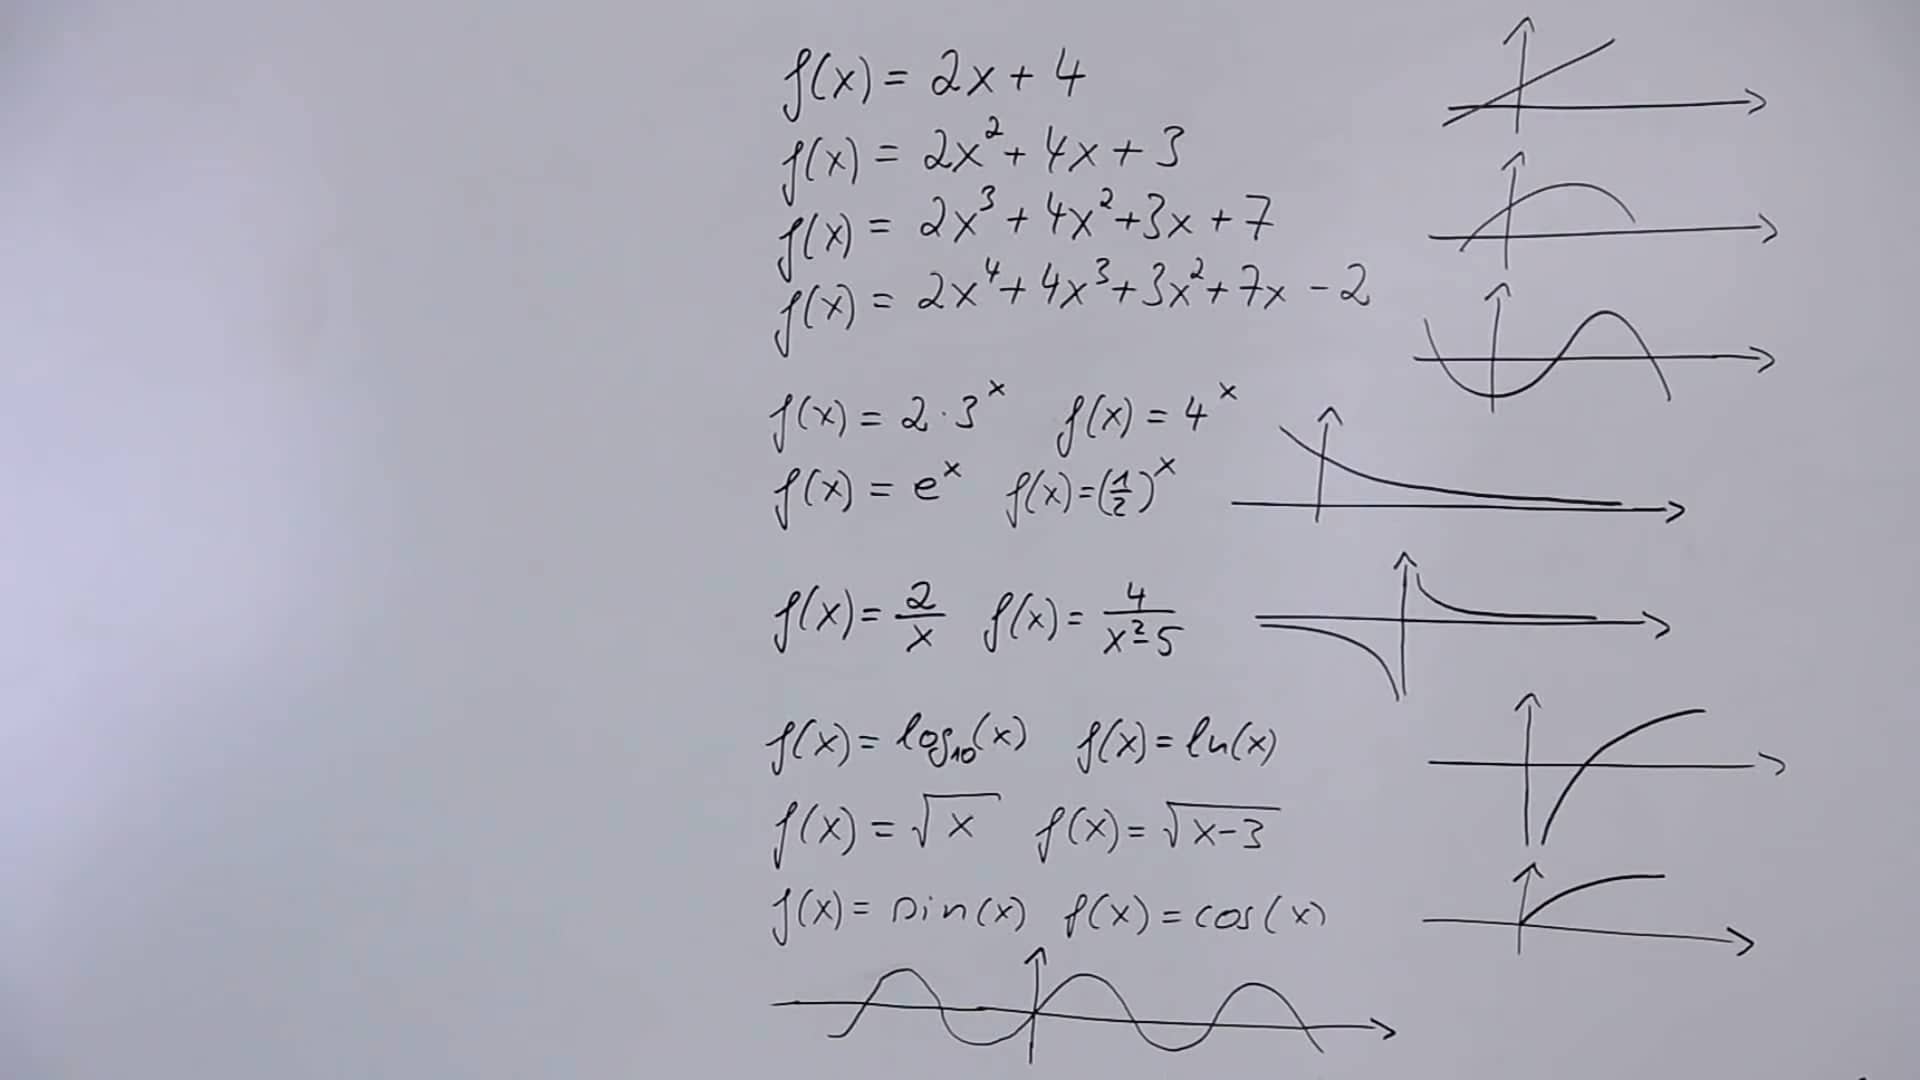 f(x) = 2x + 4
f(x) = 2x² + 4x + 3
f(x) = 2x³ + 4x² + 3x + 7
f(x) = 2x⁴ + 4x³ + 3x² + 7x - 2
f(x) = 2 · 3ˣ f(x) = 4ˣ
f(x) = eˣ f(x) = (1/2)ˣ
f(x) = 2/x f(x) = 4/(x² - 5)
f(x) = log₁₀(x) f(x) = ln(x)
f(x) = √x f(x) = √(x-3)
f(x) = sin(x) f(x) = cos(x)